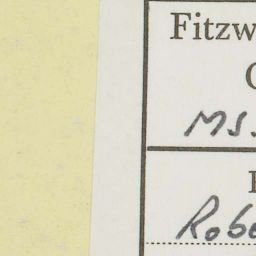 Fitzw
C
MS.
Robe